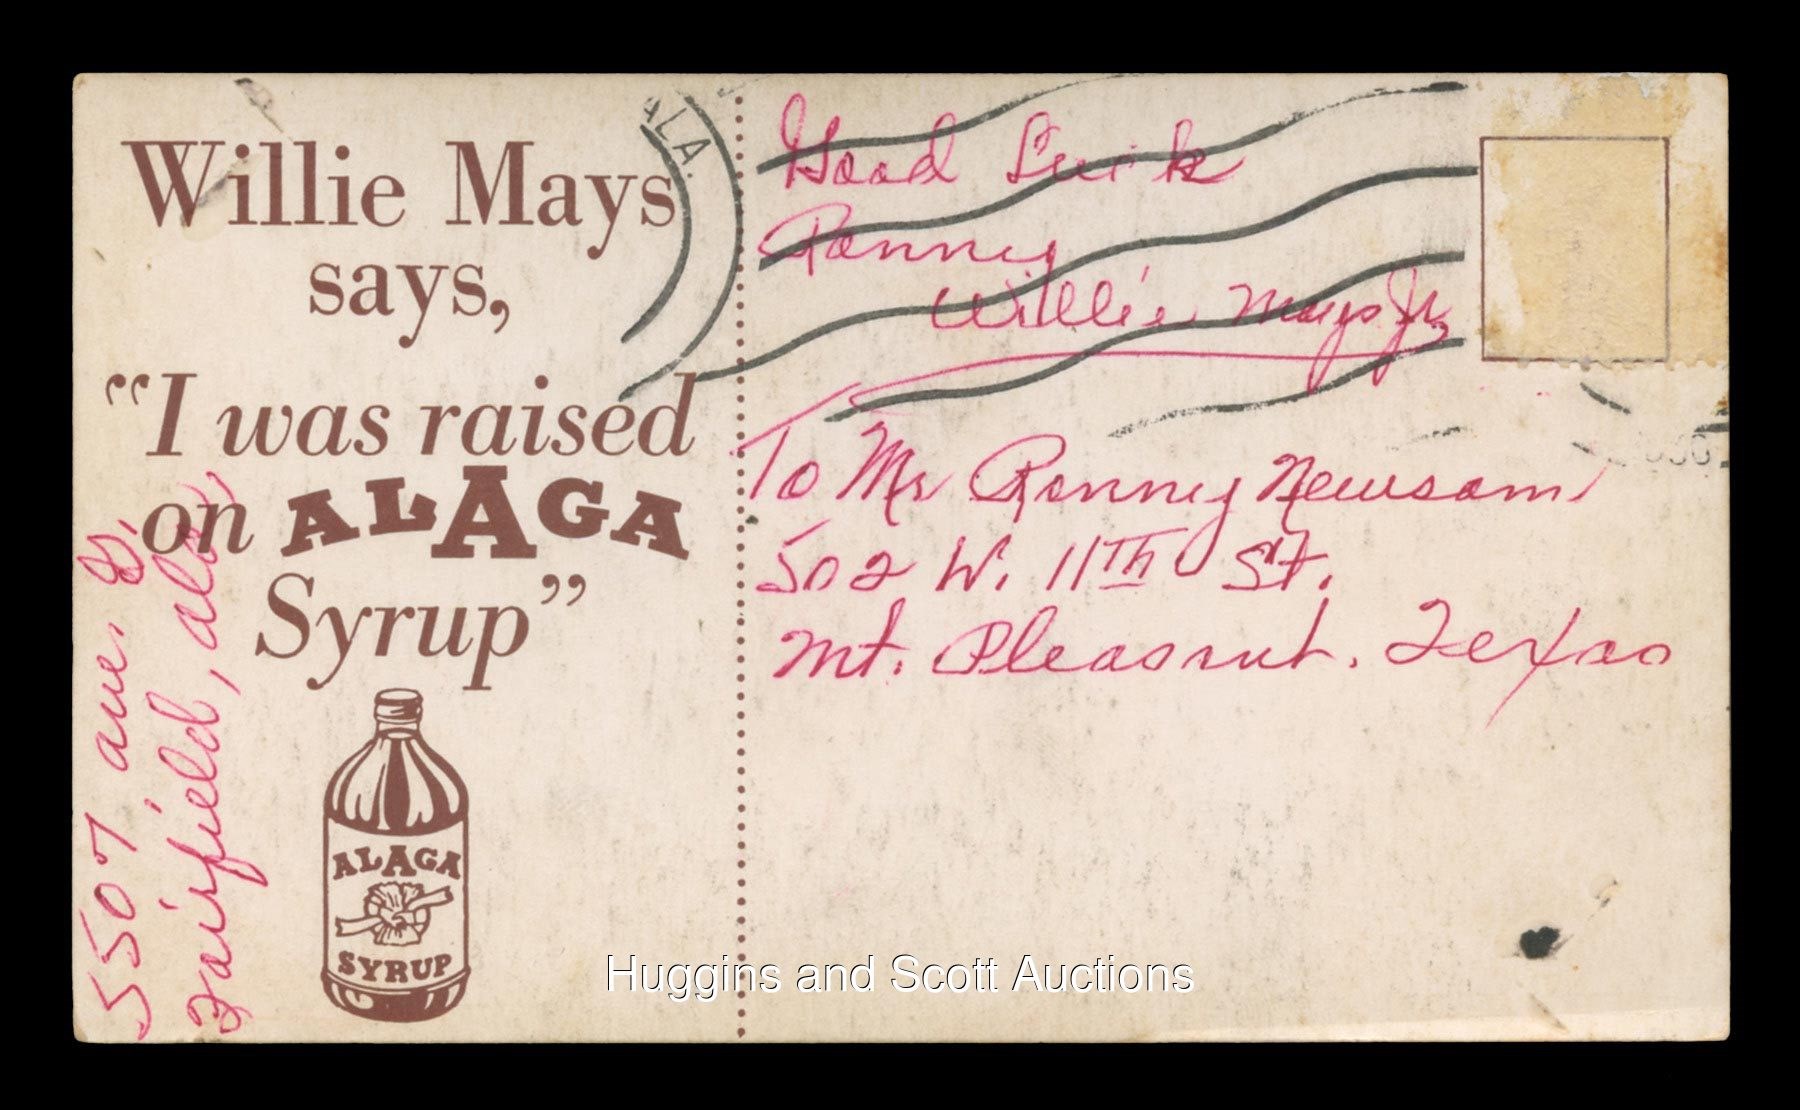 Willie Mays
says,
"I was raised
on ALAGA
Syrup"
ALAGA
SYRUP
5507 ave. G.
Fairfield, ala
ALA.
Good Luck
Ronney
Willie Mays Jr
To Mr Ronney Newsom
502 W. 11TH St.
Mt. Pleasant. Texas
Huggins and Scott Auctions